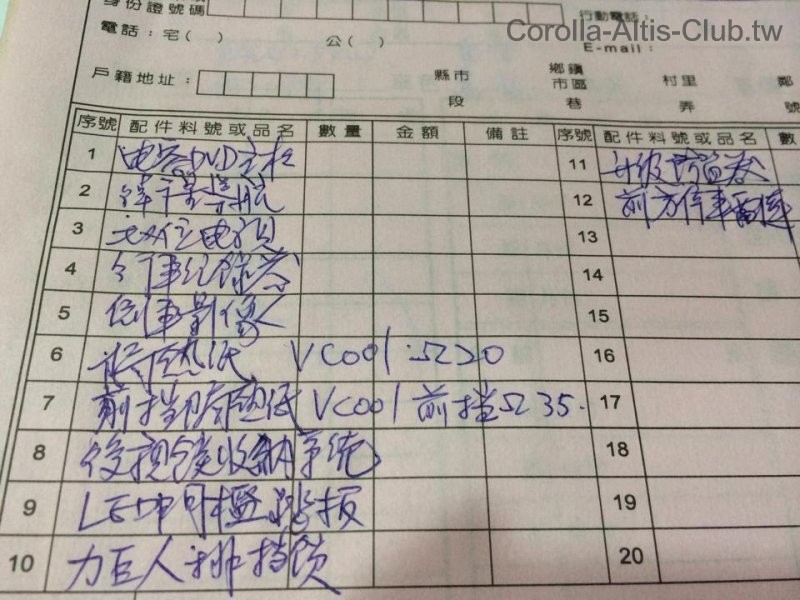 Corolla-Altis-Club.tw
身份證號碼
行動電話：
電話：宅( ) 公( )
E-mail：
戶籍地址： 縣市 鄉鎮市區 村里 鄰
段 巷 弄 號
序號 配件料號或品名 數量 金額 備註 序號 配件料號或品名 數
1 DVD主机
2 導航
3 電視
4 行車紀錄器
5 倒車影像
6 隔熱紙 VCool Ω20
7 前挡隔热紙 VCool 前挡Ω35.
8 後視鏡收納系統
9 LED門檻踏板
10 力巨人排挡鎖
11 升級防盗
12 前方停車雷達
13
14
15
16
17
18
19
20